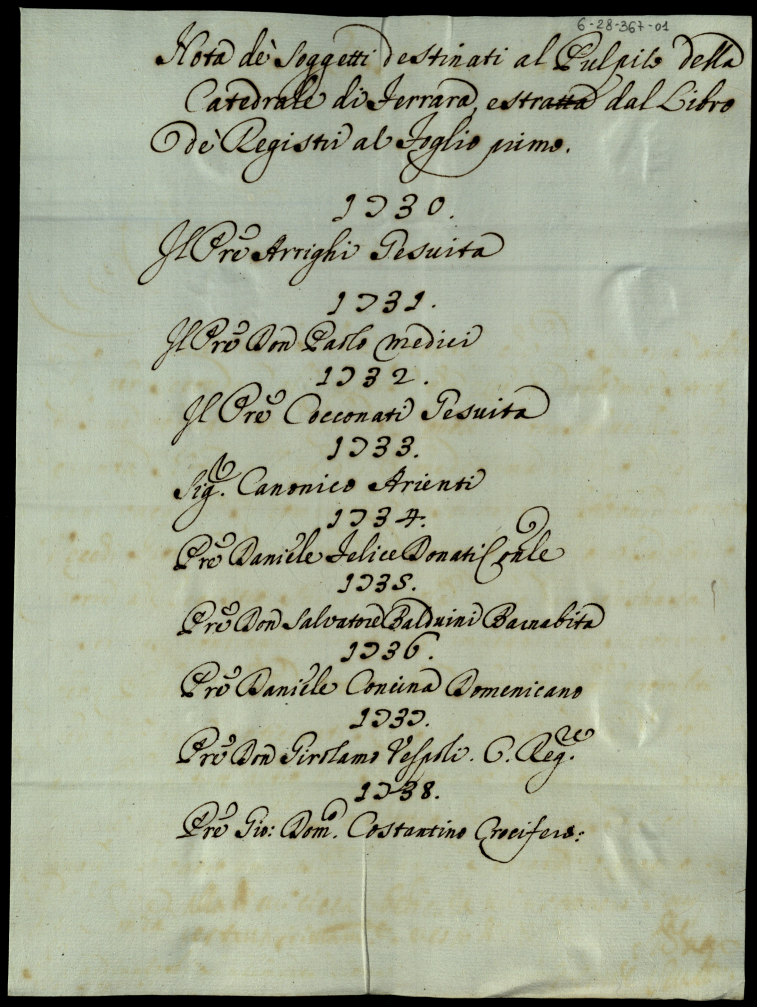 6-28-367-01
Nota de' Soggetti destinati al Pulpito della
Catedrale di Ferrara, estratta dal Libro
de' Registri al Foglio primo.
1730.
Il Prẽ Arrighi Gesuita
1731.
Il Prẽ Don Paolo Medici
1732.
Il Prẽ Cocconati Gesuita
1733.
Sig.r Canonico Arienti
1734.
Prẽ Daniele Felice Donati Conle
1735.
Prẽ Don Salvatore Balduini Barnabita
1736.
Prẽ Daniele Concina Domenicano
1737.
Prẽ Don Girolamo Vespoli. C. Reg.re
1738.
Prẽ Gio: Dom.o Costantino Crocifero: